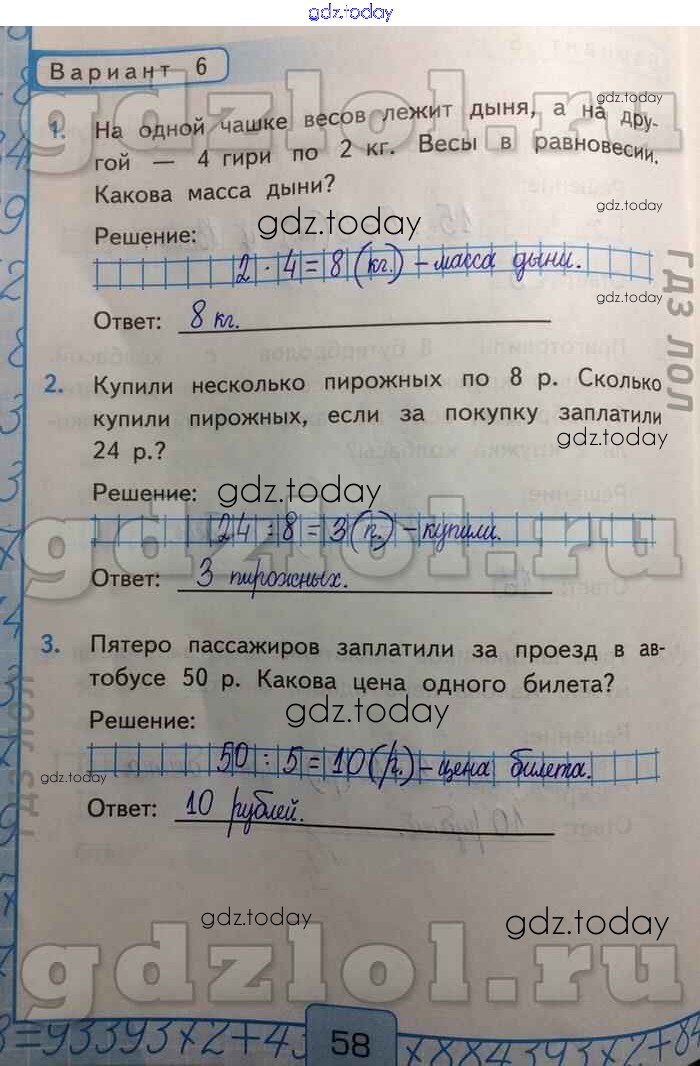 gdz.today
Вариант 6
gdzlol.ru
gdz.today
1. На одной чашке весов лежит дыня, а на дру-
гой — 4 гири по 2 кг. Весы в равновесии.
Какова масса дыни?
gdz.today
gdz.today
Решение:
2 · 4 = 8 (кг.) – масса дыни.
gdz.today
Ответ: 8 кг.
ГДЗ ЛОЛ
2. Купили несколько пирожных по 8 р. Сколько
купили пирожных, если за покупку заплатили
24 р.?
gdz.today
Решение:
gdz.today
24 : 8 = 3 (п.) – купили.
gdzlol.ru
Ответ: 3 пирожных.
3. Пятеро пассажиров заплатили за проезд в ав-
тобусе 50 р. Какова цена одного билета?
ГДЗ ЛОЛ
Решение:
gdz.today
50 : 5 = 10 (р.) – цена билета.
gdz.today
Ответ: 10 рублей.
gdz.today
gdz.today
gdzlol.ru
58